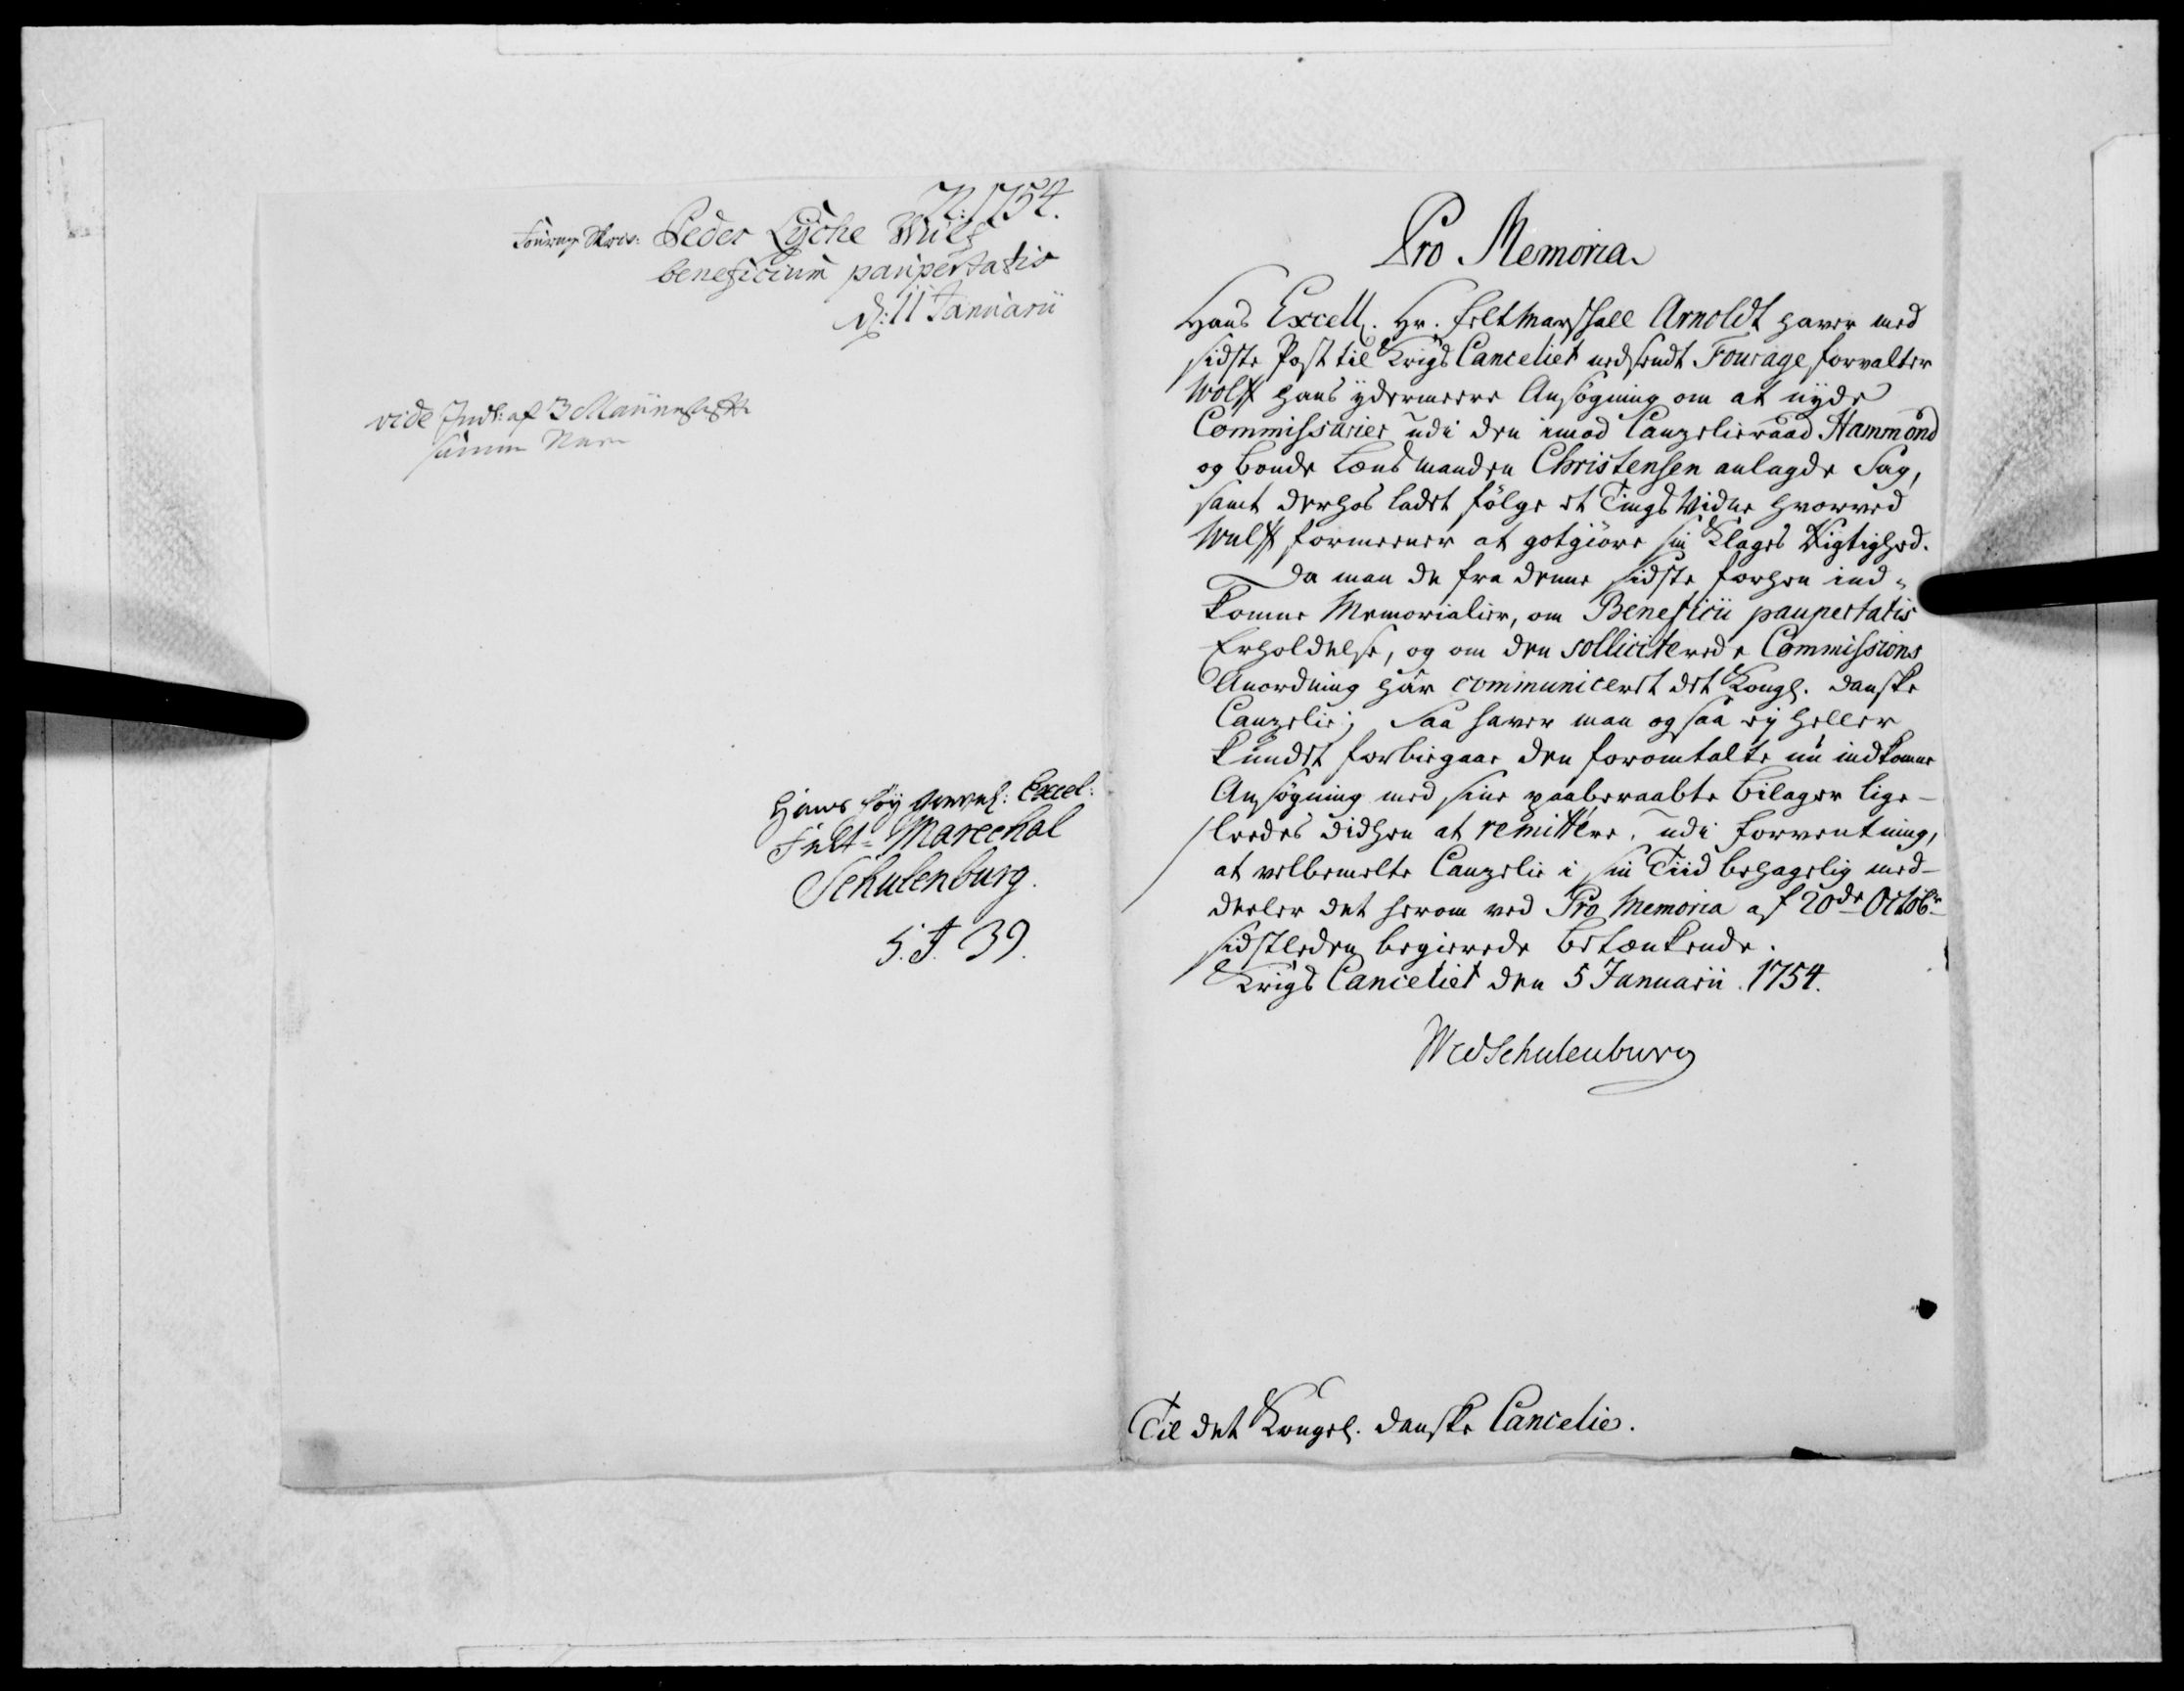 N: 1754.
Fourage Skriv: Peder Lyche Wulf
beneficium paupertatis
d: 11 Januarii
vide Indl: af 3 Martii
samme Navn
Hans Høy Grevel: Excel:
Felt-Marechal
Schulenburg.
5. J. 39.
Pro Memoria
Hans Excell. Hr. Feltmarshall Arnoldt haver med
sidste Post til Krigs Canceliet nedsendt Fourage forvalter
Wolff hans ydermeere Ansøgning om at nyde
Commissarier udi den imod Canzelieraad Hammond
og bonde Lænsmanden Christensen anlagde Sag,
samt derhos ladet følge et Tings Vidne hvorved
Wulff formeener at gotgiøre sin Klages Rigtighed.
Da man de fra denne sidste forhen ind-
komne Memorialier, om Beneficii paupertatis
Erholdelse, og om den solliciterede Commissions
Anordning har communiceret det Kongl. danske
Canzelie; Saa haver man ogsaa ey heller
kundet forbiegaae den foromtalte nu indkomne
Ansøgning med sine paaberaabte bilager lige-
leedes didhen at remittére, udi forventning,
at velbemelte Canzelie i sin Tiid behagelig med-
deeler det herom ved Pro Memoria af 20de Octobr
sidstleden begierede betænkende.
Krigs Canceliet den 5 Januarii 1754.
Wed Schulenburg
Til det Kongel. danske Cancelie.